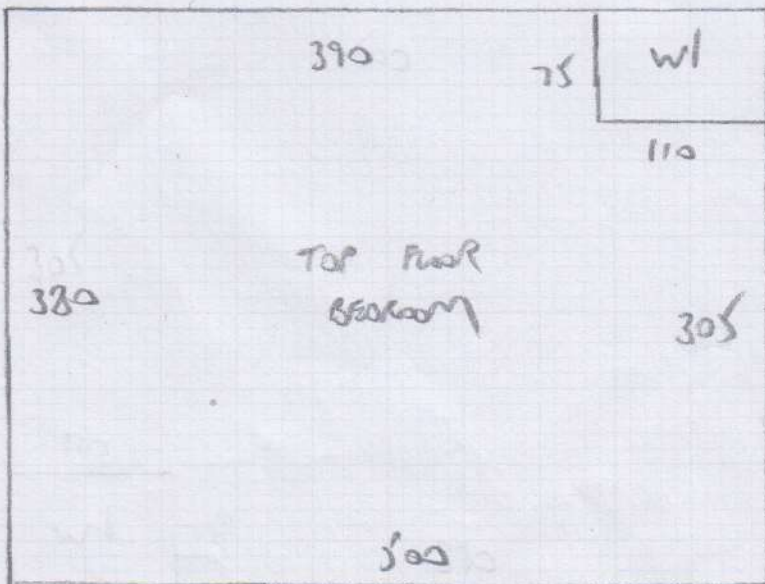 390
75
W1
110
TOP FLOOR
BEDROOM
380
305
500